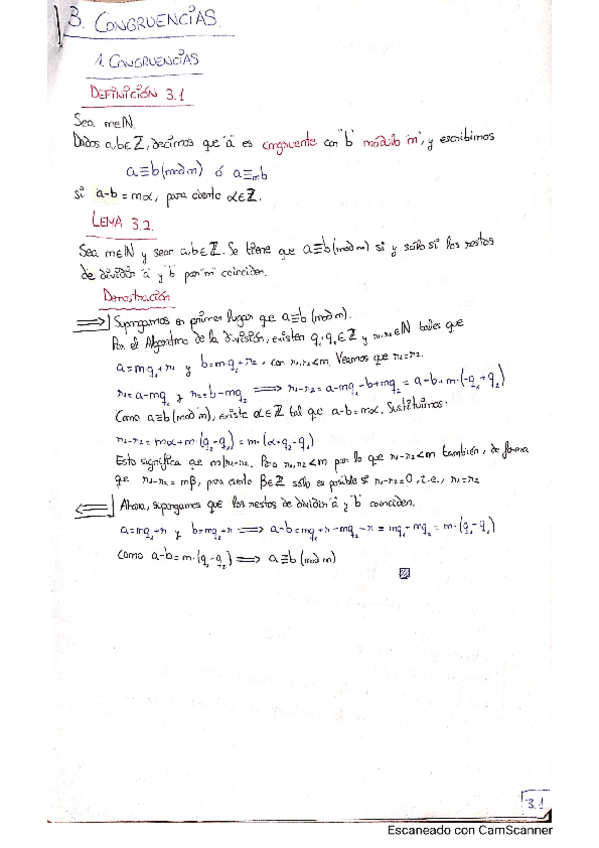 3. CONGRUENCIAS.
1. CONGRUENCIAS
DEFINICIÓN 3.1
Sea m∈ℕ.
Dados a,b∈ℤ, decimos que "a" es congruente con "b" módulo "m", y escribimos
a≡b(mod m) ó a≡ₘb
si a-b=mα, para cierto α∈ℤ.
LEMA 3.2.
Sea m∈ℕ y sean a,b∈ℤ. Se tiene que a≡b(mod m) si y sólo si los restos
de dividir "a" y "b" por "m" coinciden.
Demostración
⟹| Supongamos en primer lugar que a≡b (mod m).
Por el Algoritmo de la división, existen q₁,q₂∈ℤ y r₁,r₂∈ℕ tales que
a=mq₁+r₁ y b=m·q₂+r₂, con r₁,r₂<m. Veamos que r₁=r₂.
r₁=a-mq₁ y r₂=b-mq₂ ⟹ r₁-r₂=a-mq₁-b+mq₂=a-b+m·(-q₁+q₂)
Como a≡b(mod m), existe α∈ℤ tal que a-b=mα. Sustituimos:
r₁-r₂=mα+m·(q₂-q₁)=m·(α+q₂-q₁)
Esto significa que m|r₁-r₂. Pero r₁,r₂<m por lo que r₁-r₂<m también, de forma
que r₁-r₂=mβ, para cierto β∈ℤ sólo es posible si r₁-r₂=0, i.e., r₁=r₂
⟸| Ahora, supongamos que los restos de dividir "a" y "b" coinciden.
a=mq₁+r y b=mq₂+r ⟹ a-b=mq₁+r-mq₂-r=mq₁-mq₂=m·(q₁-q₂)
Como a-b=m·(q₁-q₂) ⟹ a≡b(mod m)
3.1
Escaneado con CamScanner